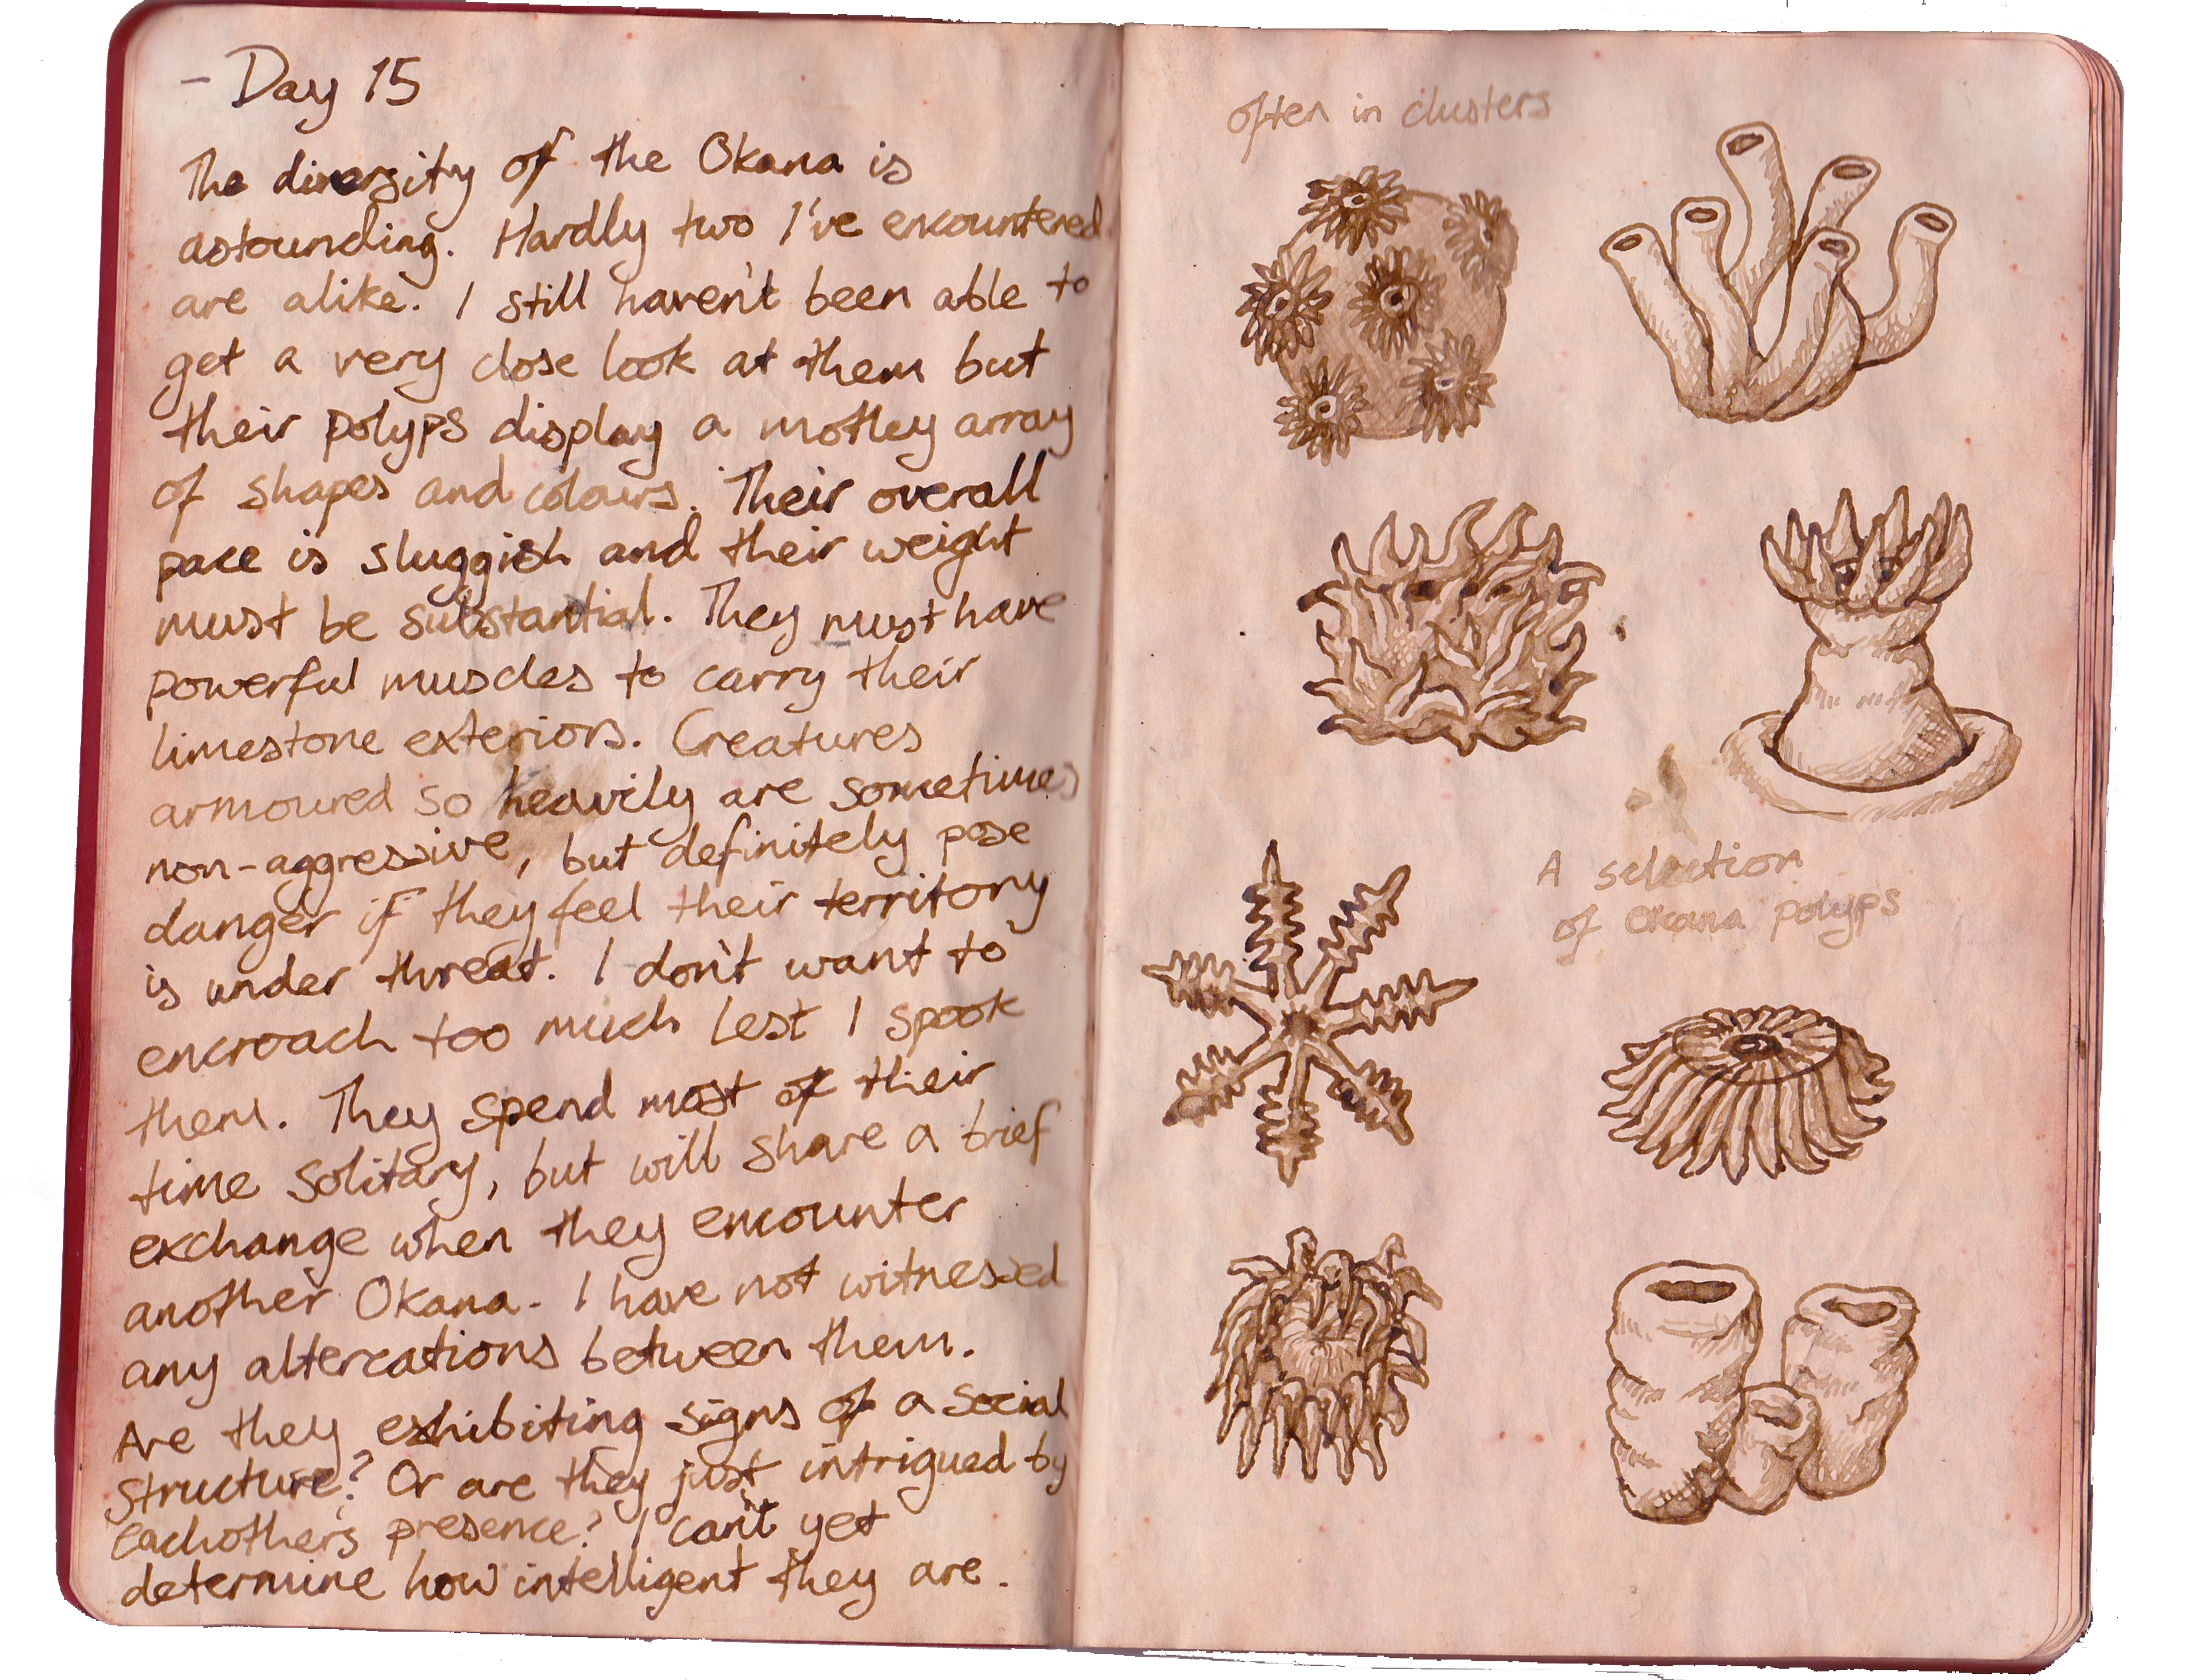 - Day 15
The diversity of the Okana is
astounding. Hardly two I've encountered
are alike. I still haven't been able to
get a very close look at them but
their polyps display a motley array
of shapes and colours. Their overall
pace is sluggish and their weight
must be substantial. They must have
powerful muscles to carry their
limestone exteriors. Creatures
armoured so heavily are sometimes
non-aggressive, but definitely pose
danger if they feel their territory
is under threat. I don't want to
encroach too much lest I spook
them. They spend most of their
time solitary, but will share a brief
exchange when they encounter
another Okana. I have not witnessed
any altercations between them.
Are they exhibiting signs of a social
structure? Or are they just intrigued by
eachother's presence? I can't yet
determine how intelligent they are.
often in clusters
A selection
of Okana polyps